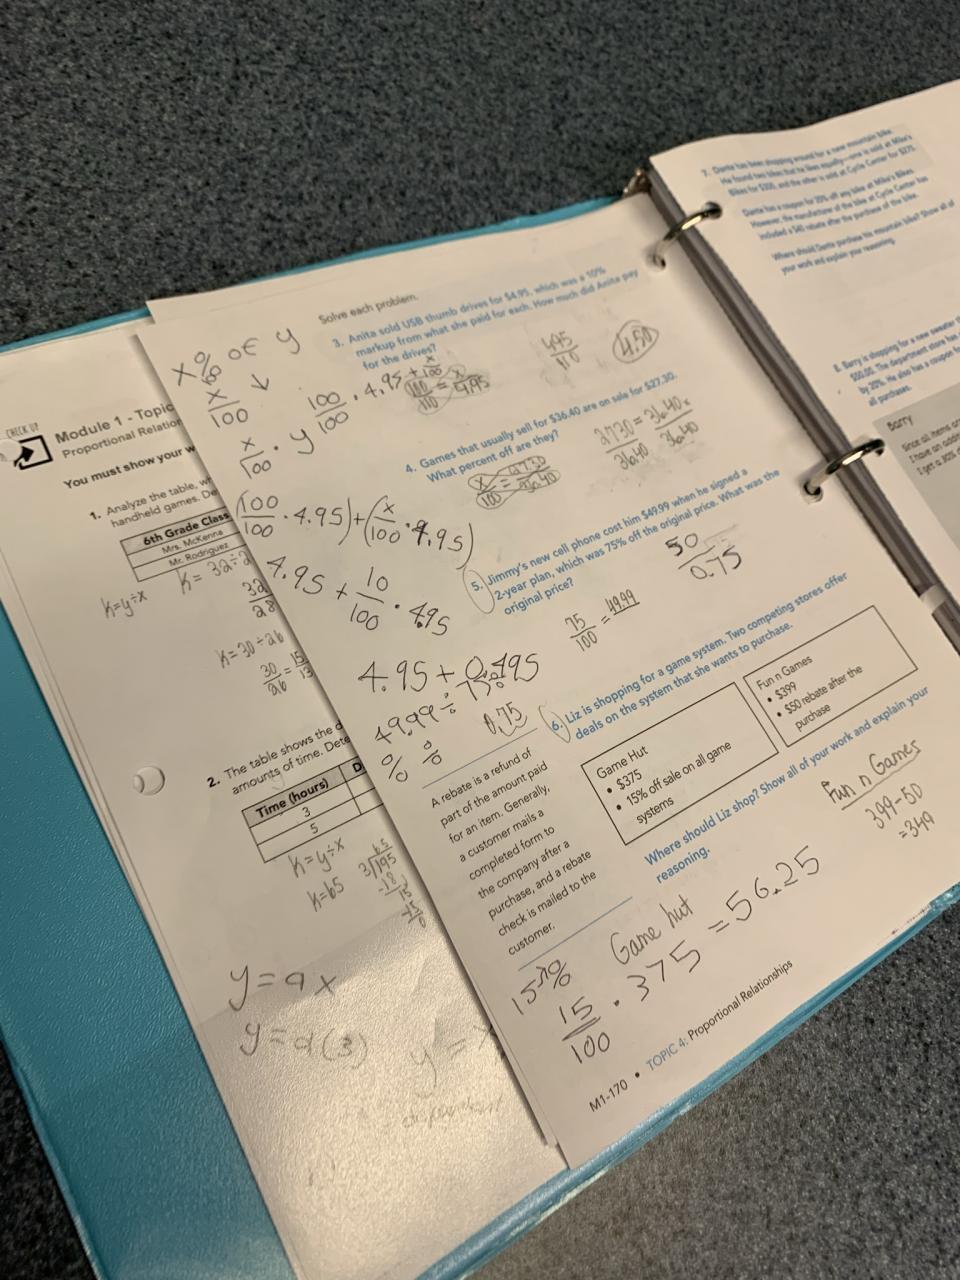 CHECK UP
Module 1 - Topic
Proportional Relation
You must show your w
1. Analyze the table, w
handheld games. De
6th Grade Class
Mrs. McKenna
Mr. Rodriguez
K=y÷x
K= 32÷2
32
28
K=30÷26
30/26=15/13
2. The table shows the d
amounts of time. Dete
Time (hours)
D
3
5
K=y÷x
K=65
65
3)195
-18
y=ax
y=a(3)
y=
Solve each problem.
3. Anita sold USB thumb drives for $4.95, which was a 10%
markup from what she paid for each. How much did Anita pay
for the drives?
X% OF y
x/100
x/100 · y
100/100 · 4.95 + x/100
100/110 = x/4.95
495/110
4.50
(100/100 · 4.95) + (x/100 · 4.95)
4.95 + 10/100 · 4.95
4.95 + 0.495
4. Games that usually sell for $36.40 are on sale for $27.30.
What percent off are they?
x/100 = 27.30/36.40
2730/36.40 = 36.40x/36.40
5. Jimmy's new cell phone cost him $49.99 when he signed a
2-year plan, which was 75% off the original price. What was the
original price?
75/100 = 49.99
50/0.75
49.99 ÷ 75.
0.75
% %
6. Liz is shopping for a game system. Two competing stores offer
deals on the system that she wants to purchase.
Game Hut
• $375
• 15% off sale on all game
systems
Fun n Games
• $399
• $50 rebate after the
purchase
Where should Liz shop? Show all of your work and explain your
reasoning.
A rebate is a refund of
part of the amount paid
for an item. Generally,
a customer mails a
completed form to
the company after a
purchase, and a rebate
check is mailed to the
customer.
Fun n Games
399-50
=349
Game hut
15/100 · 375 = 56.25
M1-170 • TOPIC 4: Proportional Relationships
7. Dante has been shopping around for a new mountain bike.
He found two bikes that he likes equally—one is sold at Mike's
Bikes for $300, and the other is sold at Cycle Center for $275.
Dante has a coupon for 20% off any bike at Mike's Bikes.
However, the manufacturer of the bike at Cycle Center has
included a $40 rebate after the purchase of the bike.
Where should Dante purchase his mountain bike? Show all of
your work and explain your reasoning.
8. Barry is shopping for a new sweater
$50.00. The department store has
by 20%. He also has a coupon fo
all purchases.
Barry
Since all items ar
I have an addit
I get a 30%